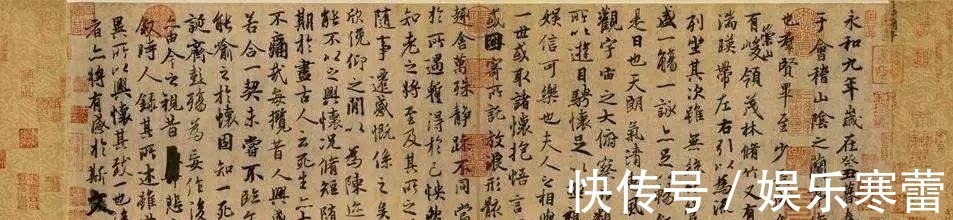 永和九年歲在癸丑暮
于會稽山陰之蘭
也群賢畢至少
崇山
有峻領茂林脩竹又有
湍暎帶左右引以為流
列坐其次雖無絲
盛一觴一詠亦足
是日也天朗氣清
觀宇宙之大俯察
所以遊目騁懷足
娛信可樂也夫人之相
一世或取諸懷抱悟言
或因寄所託放浪形骸
趣舍萬殊靜躁不同當
於所遇蹔得於己怏然
知老之將至及其所之
隨事遷感慨係之
欣俛仰之閒以為陳迹
能不以之興懷況脩短隨
期於盡古人云死生亦大
不痛哉每攬昔人興感
若合一契未嘗不臨
能喻之於懷固知一死
誕齊彭殤為妄作後
由今之視昔 悲
敘時人錄其所述雖世
異所以興懷其致一也
者亦將有感於斯文
快传号 / 娱乐寒蕾